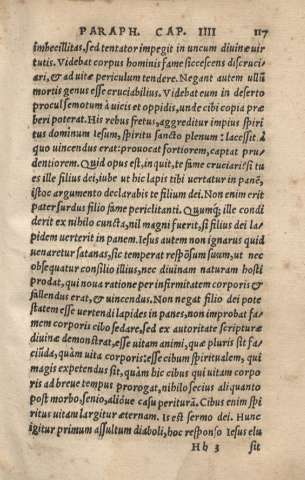 PARAPH. CAP. IIII 117
imbecillitas, sed tentator impegit in uncum divinæ vir
tutis. Videbat corpus hominis fame siccescens discruci
ari, & ad vitæ periculum tendere. Negant autem ullũ
mortis genus esse cruciabilius. Videbat eum in deserto
procul semotum à vicis et oppidis, unde cibi copia præ
beri poterat. His rebus fretus, aggreditur impius spiri
tus dominum Iesum, spiritu sancto plenum: lacessit à
quo vincendus erat: provocat fortiorem, captat pru
dentiorem. Quid opus est, inquit, te fame cruciari? si tu
es ille filius dei, iube ut hic lapis tibi vertatur in panẽ,
istoc argumento declarabis te filium dei. Non enim erit
pater surdus filio fame periclitanti. Quumq; ille condi
derit ex nihilo cuncta, nil magni fuerit, si filius dei la-
pidem verterit in panem. Iesus autem non ignarus quid
venaretur satanas, sic temperat respõsum suum, ut nec
obsequatur consilio illius, nec divinam naturam hosti
prodat, qui nova ratione per infirmitatem corporis &
fallendus erat, & vincendus. Non negat filio dei pote
statem esse vertendi lapides in panes, non improbat fa-
mem corporis cibo sedare, sed ex autoritate scripturæ
divinæ demonstrat, esse vitam animi, quæ pluris sit fa-
ciũda, quàm vita corporis: esse cibum spiritualem, qui
magis expetendus sit, quàm hic cibus qui vitam corpo
ris ad breve tempus prorogat, nihilo secius aliquanto
post morbo, senio, alióve casu perituræ. Cibus enim spi
ritus vitam largitur æternam. Is est sermo dei. Hunc
igitur primum assultum diaboli, hoc responso Iesus elu
Hh 3 sit